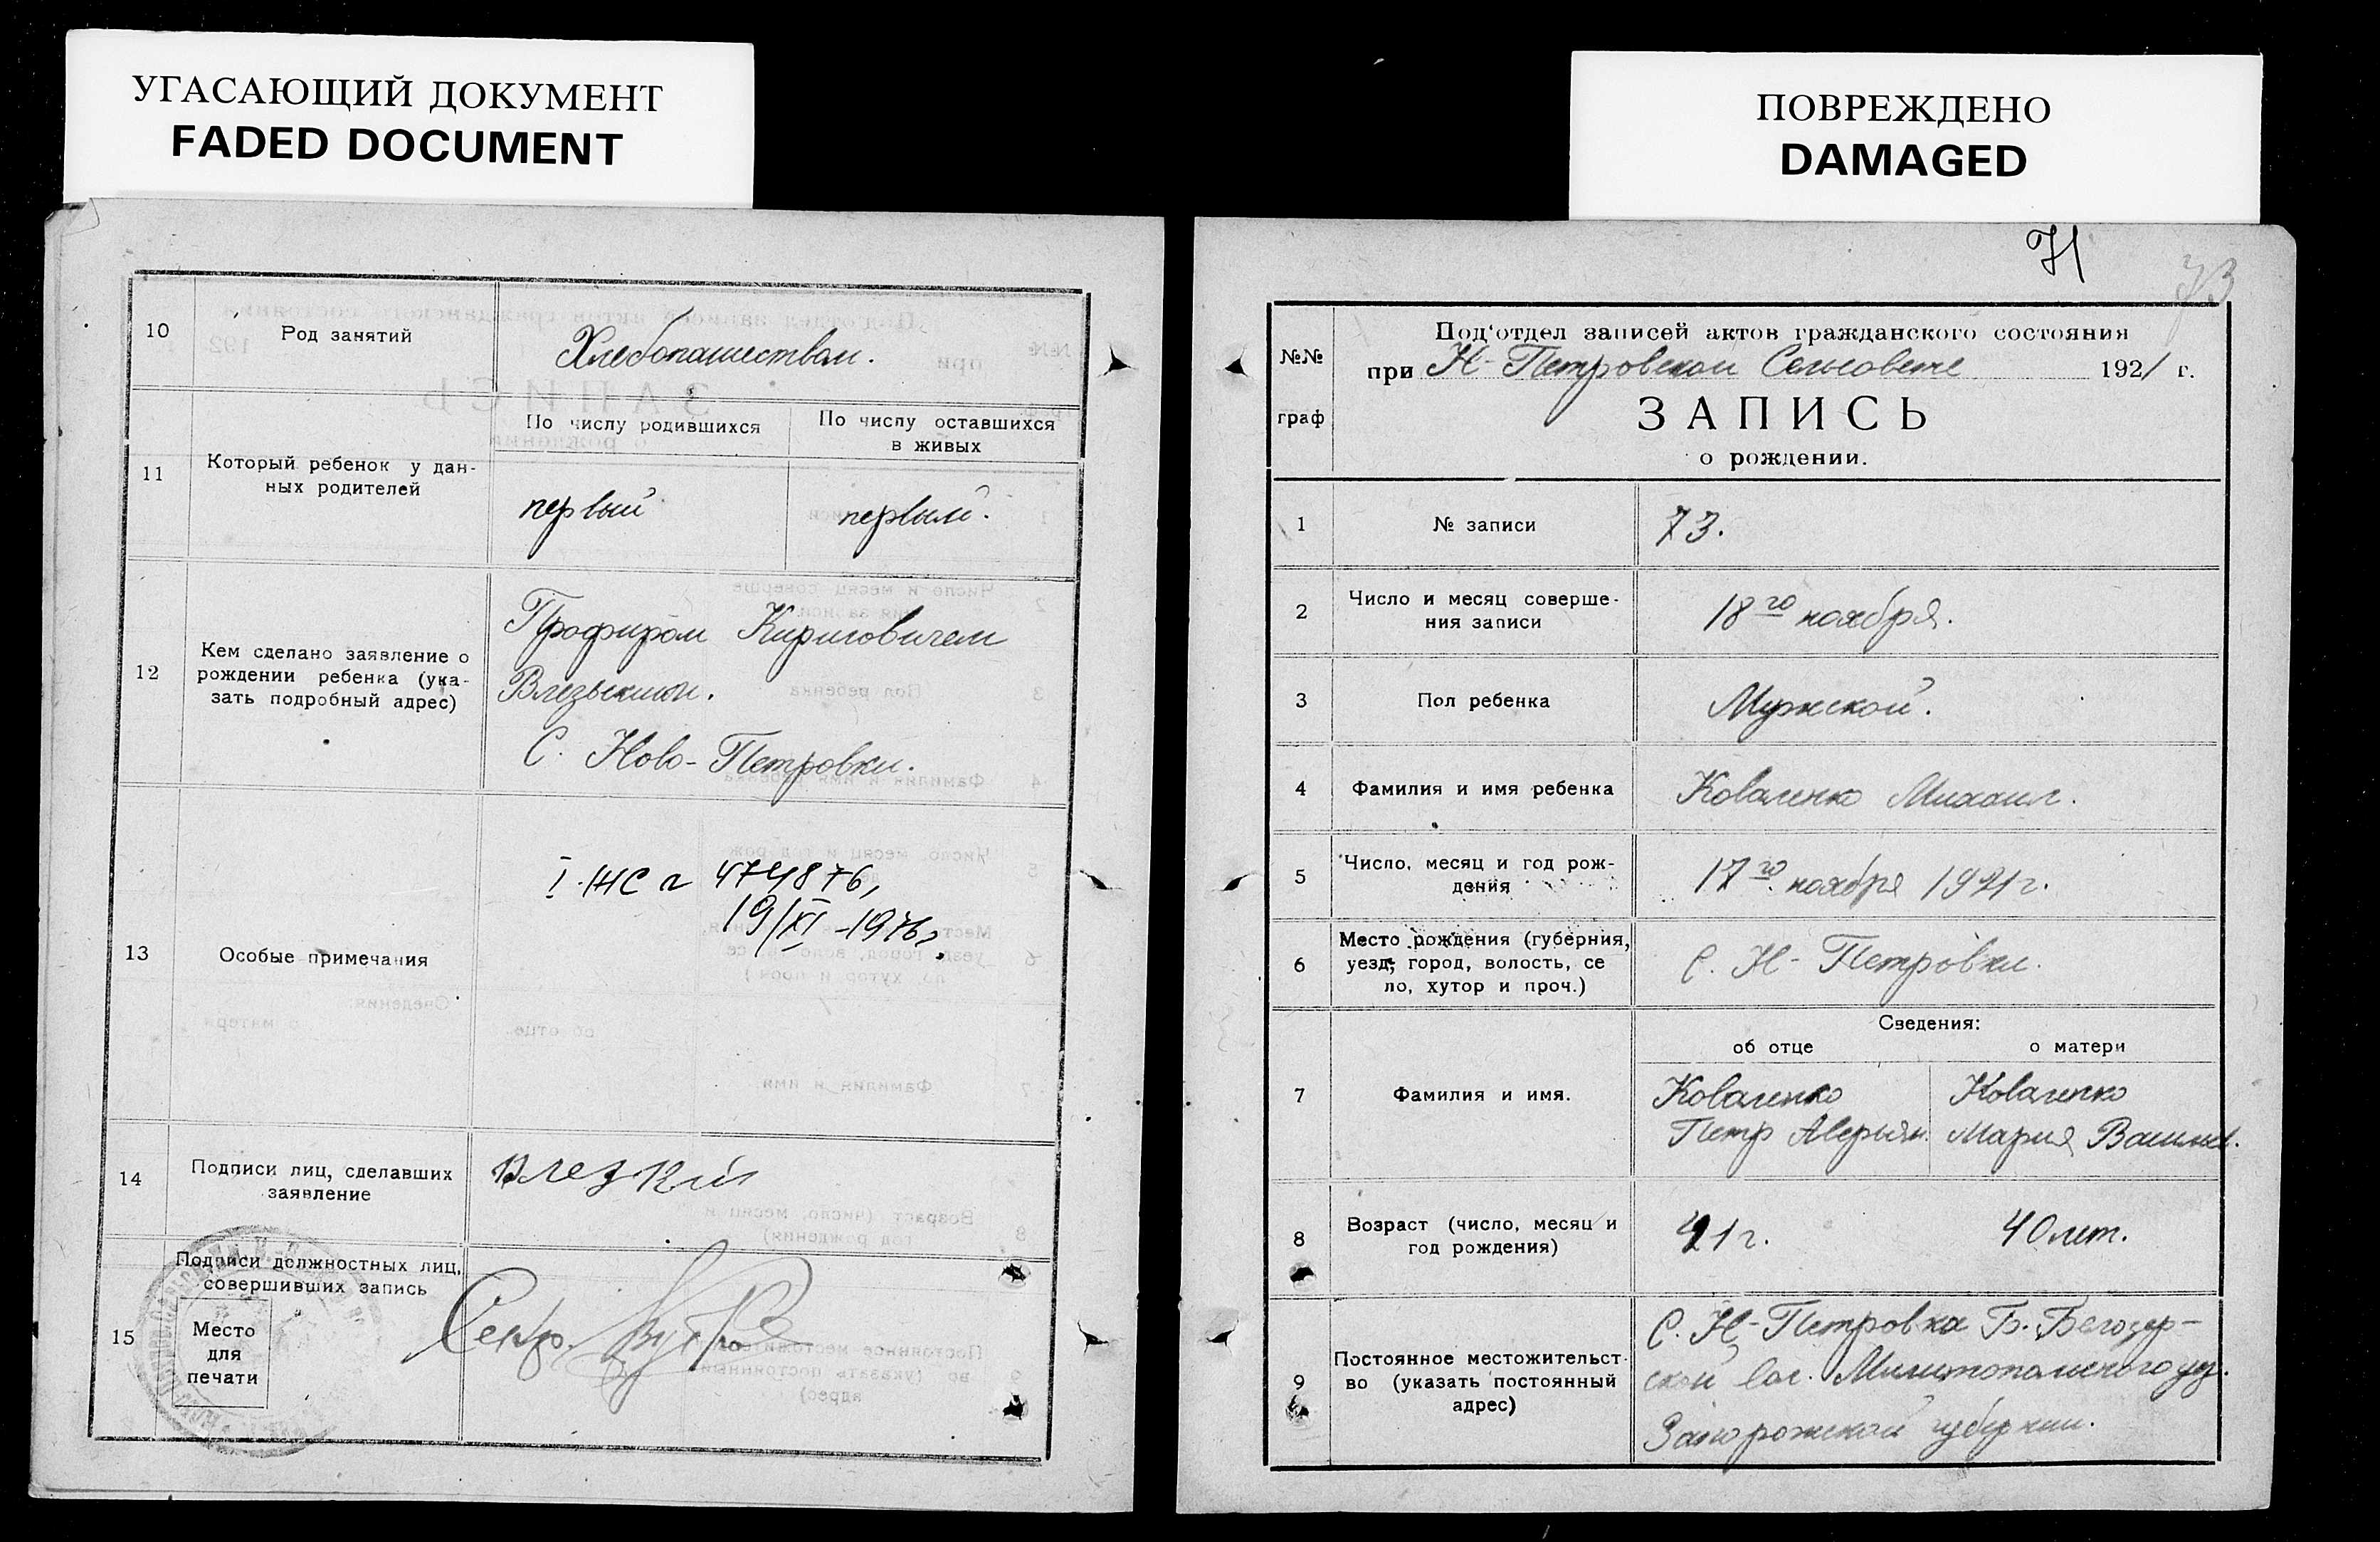 УГАСАЮЩИЙ ДОКУМЕНТ
FADED DOCUMENT
10
Род занятий
Хлебопашеством.
11
Который ребенок у дан-
ных родителей
По числу родившихся
По числу оставшихся
в живых
первый
первый.
12
Кем сделано заявление о
рождении ребенка (ука-
зать подробный адрес)
С. Ново-Петровки.
13
Особые примечания
19/XI-1976
14
Подписи лиц, сделавших
заявление
15
Подписи должностных лиц,
совершивших запись
Место
для
печати
Секр.
ПОВРЕЖДЕНО
DAMAGED
73
№№
граф
Под'отдел записей актов гражданского состояния
при Н-Петровском Сельсовете 1921 г.
ЗАПИСЬ
о рождении.
1
№ записи
73.
2
Число и месяц соверше-
ния записи
18го ноября.
3
Пол ребенка
Мужской.
4
Фамилия и имя ребенка
Коваленко Михаил.
5
Число, месяц и год рож-
дения
17го ноября 1921г.
6
Место рождения (губерния,
уезд, город, волость, се
ло, хутор и проч.)
С. Н-Петровки.
Сведения:
об отце
о матери
7
Фамилия и имя.
Коваленко
Петр Аверьян.
Коваленко
Мария Васильев.
8
Возраст (число, месяц и
год рождения)
41г.
40 лет.
9
Постоянное местожительст-
во (указать постоянный
адрес)
С. Н-Петровка Б. Белозер-
ской вол. Милитопольского уез.
Запорожской губернии.